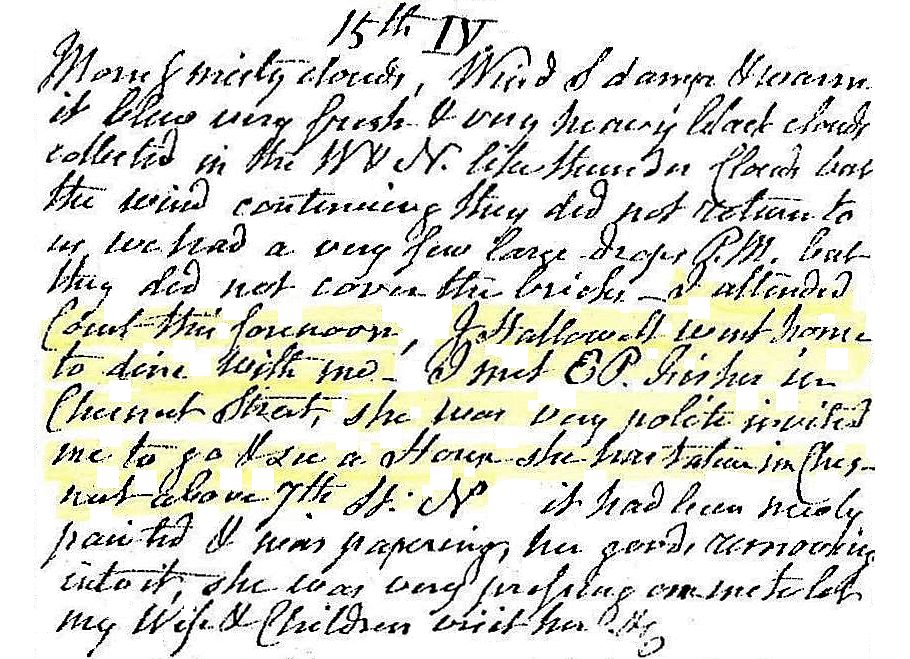 15th IV
Morng misty clouds, Wind S damp & warm
it blew very fresh & very heavy black clouds
collected in the W & N. like thunder Clouds but
the wind continuing they did not return to
us we had a very few large drops P.M. but
they did not cover the bricks – I attended
Court this forenoon, J Hallowell went home
to dine with me – I met EP. Fisher in
Chesnut Street, she was very polite invited
me to go & see a House she has taken in Ches-
nut above 7th St. No it had been newly
painted & was papering, her goods removing
into it, she was very pressing on me to let
my Wife & Children visit her &c